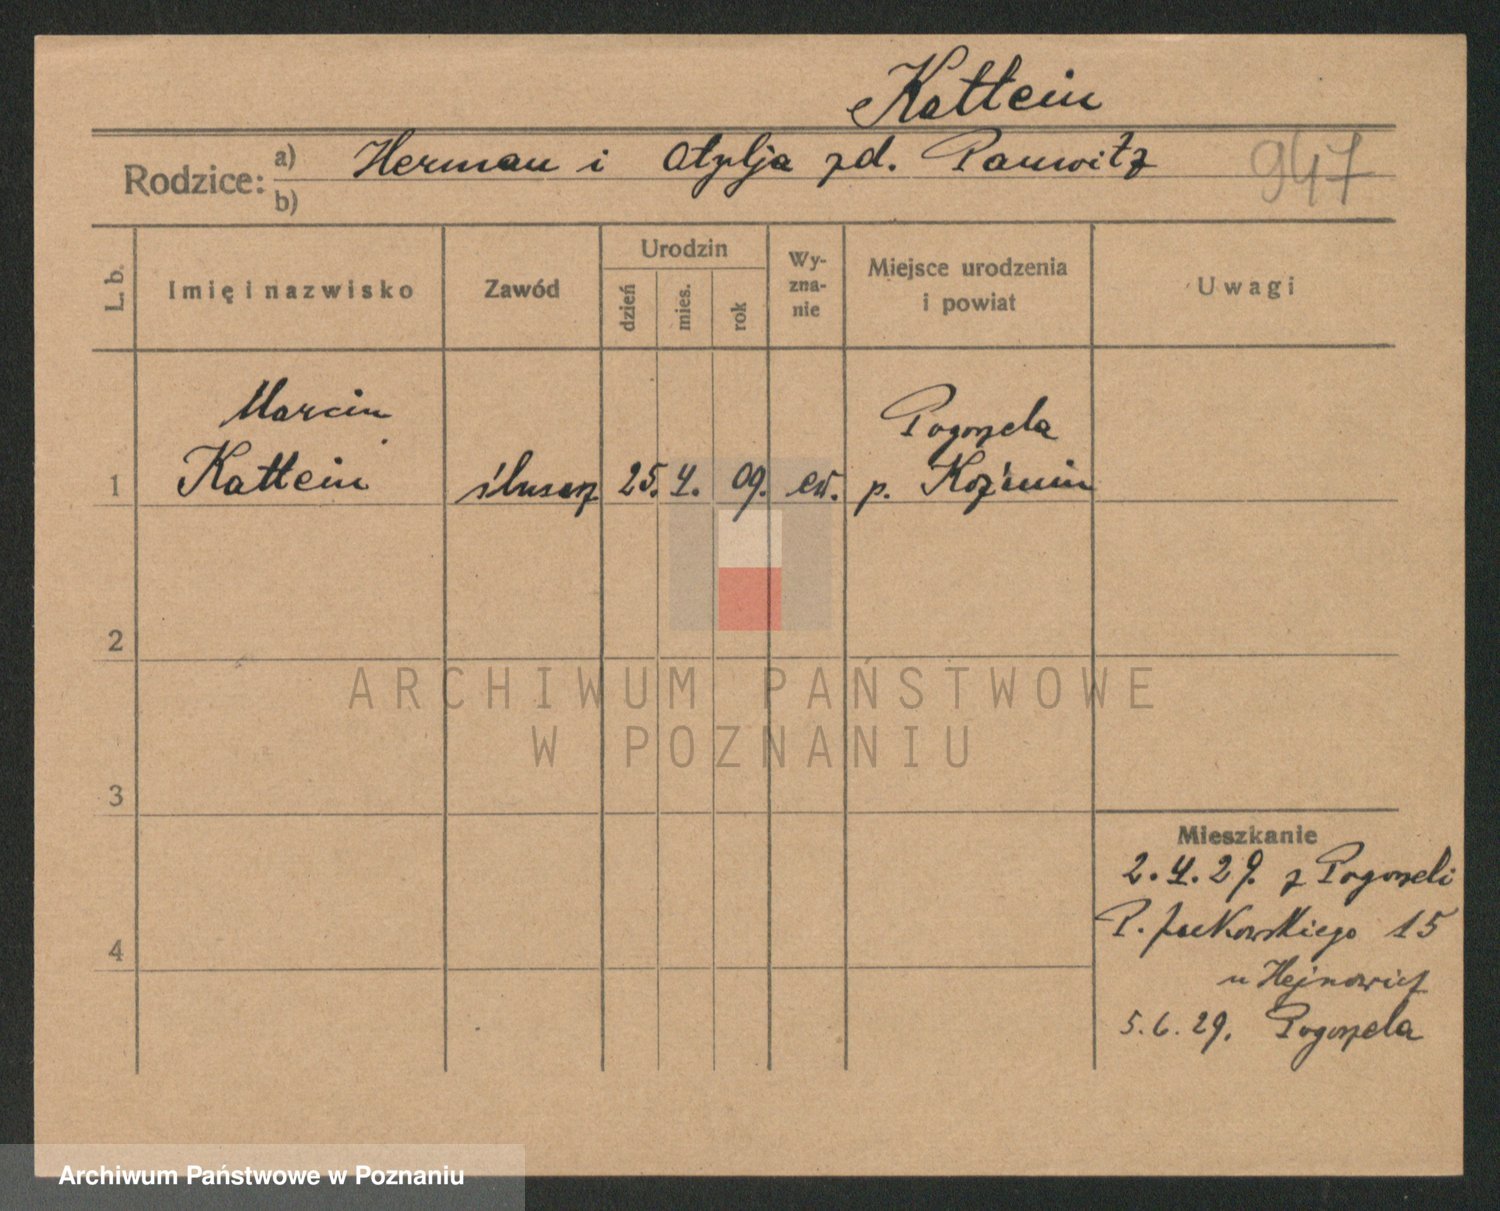 Kattein
Rodzice: a) Herman i Otylja zd. Panwitz
b)
947
L. b.
Imię i nazwisko
Zawód
Urodzin
dzień
mies.
rok
Wy-
zna-
nie
Miejsce urodzenia
i powiat
Uwagi
Marcin
Pogorzela
1 Kattein ślusarz 25. 4. 09. ew. p. Koźmin
2
ARCHIWUM PAŃSTWOWE
W POZNANIU
3
Mieszkanie
2.4.29. z Pogorzeli
P.
15
4
u
5.6.29. Pogorzela
Archiwum Państwowe w Poznaniu